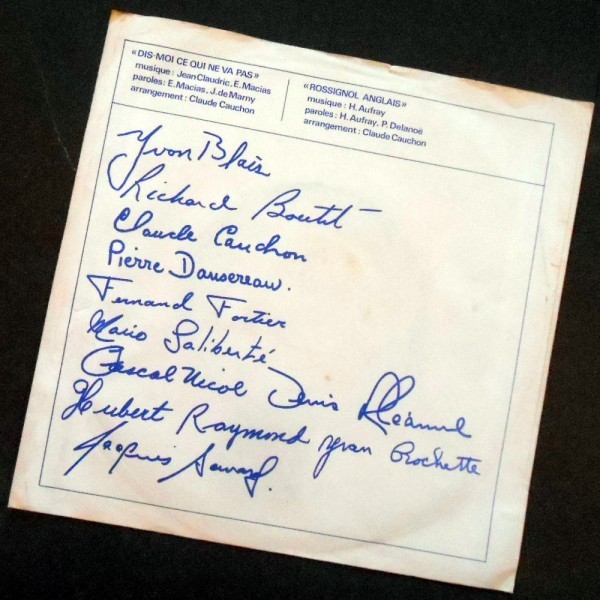 «DIS-MOI CE QUI NE VA PAS»
musique : Jean Claudric, E. Macias
paroles : E. Macias, J. de Marny
arrangement : Claude Cauchon
«ROSSIGNOL ANGLAIS»
musique : H. Aufray
paroles : H. Aufray, P. Delanoë
arrangement : Claude Cauchon
Yvon Blais
Richard
Claude Cauchon
Pierre Dansereau.
Fernand Fortier
Mario Laliberté
Pascal Nicol Denis
Hubert Raymond Yvan Rochette
Jacques Savard.